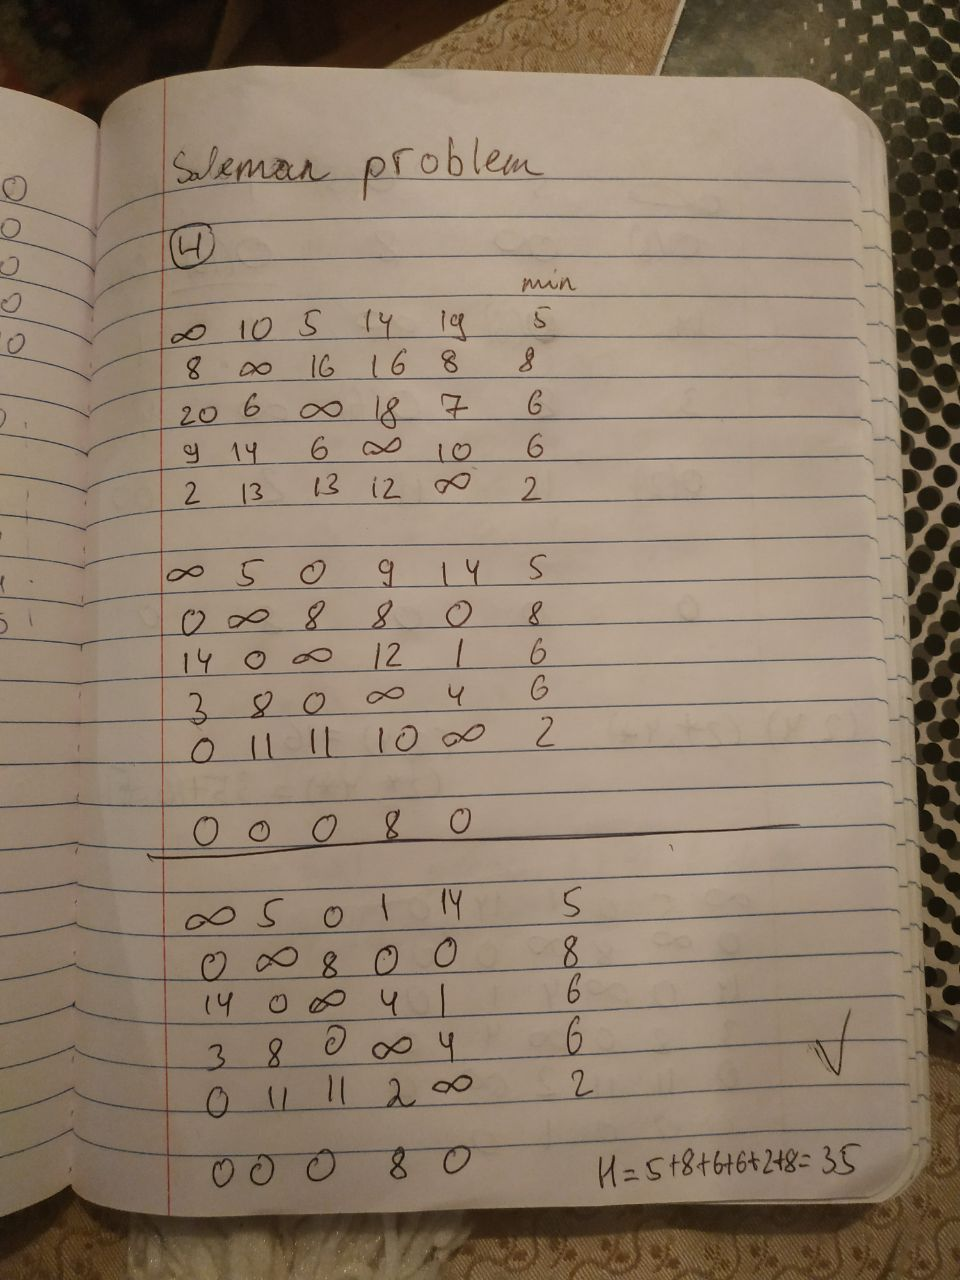 Saleman problem
4
min
∞ 10 5 14 19 5
8 ∞ 16 16 8 8
20 6 ∞ 18 7 6
9 14 6 ∞ 10 6
2 13 13 12 ∞ 2
∞ 5 0 9 14 5
0 ∞ 8 8 0 8
14 0 ∞ 12 1 6
3 8 0 ∞ 4 6
0 11 11 10 ∞ 2
0 0 0 8 0
∞ 5 0 1 14 5
0 ∞ 8 0 0 8
14 0 ∞ 4 1 6
3 8 0 ∞ 4 6
0 11 11 2 ∞ 2
0 0 0 8 0 H=5+8+6+6+2+8=35